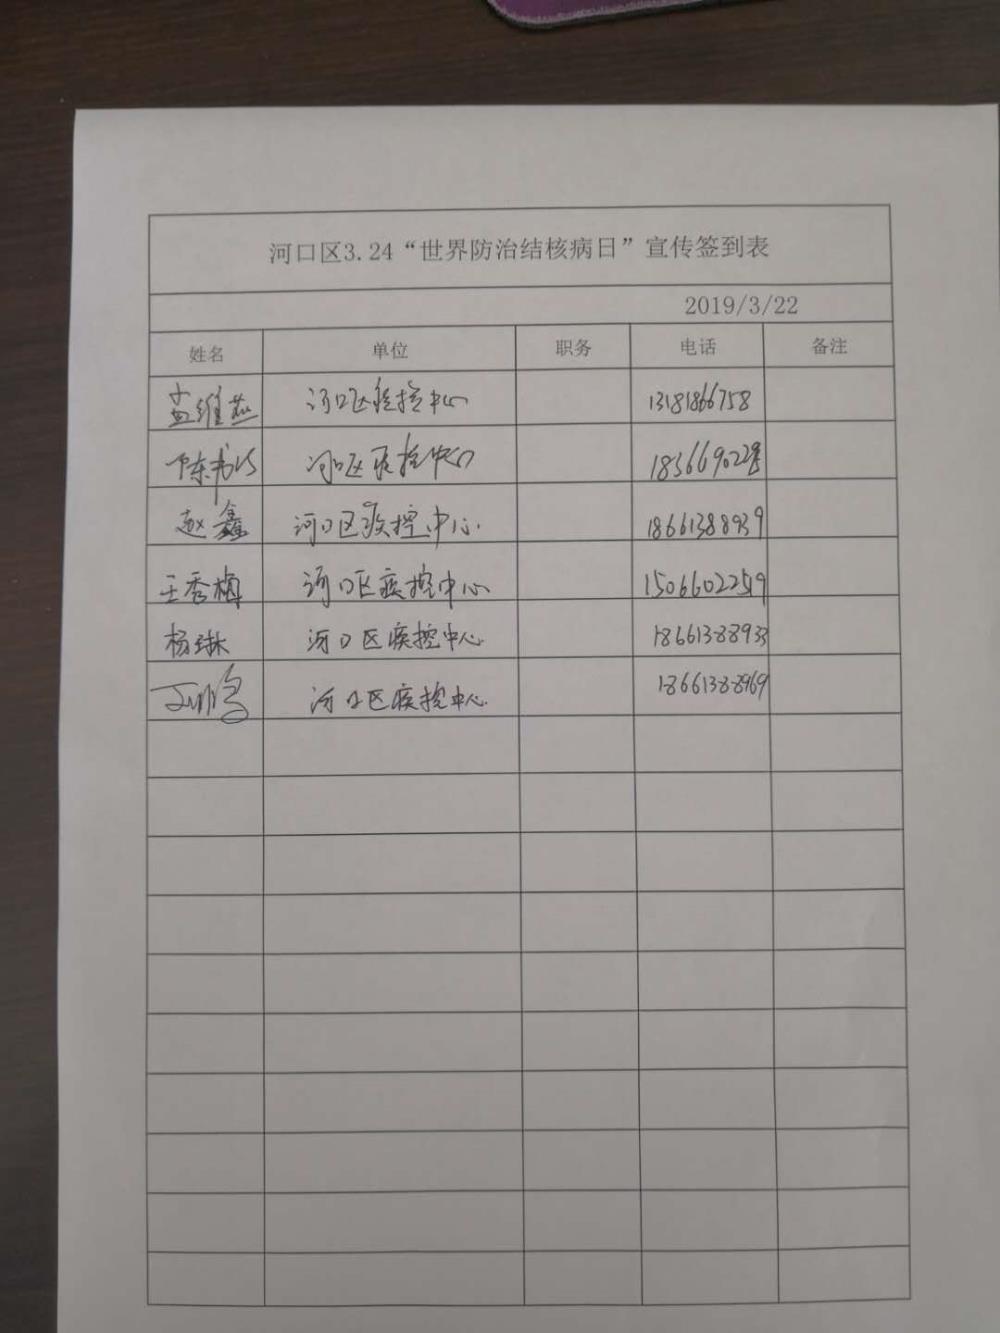 河口区3.24“世界防治结核病日”宣传签到表
2019/3/22
姓名 单位 职务 电话 备注
孟维燕 河口区疾控中心 13181866758
陈 河口区疾控中心
赵鑫 河口区疾控中心 18661388939
王秀梅 河口区疾控中心 15066022519
杨琳 河口区疾控中心 18661388933
河口区疾控中心 18661388969